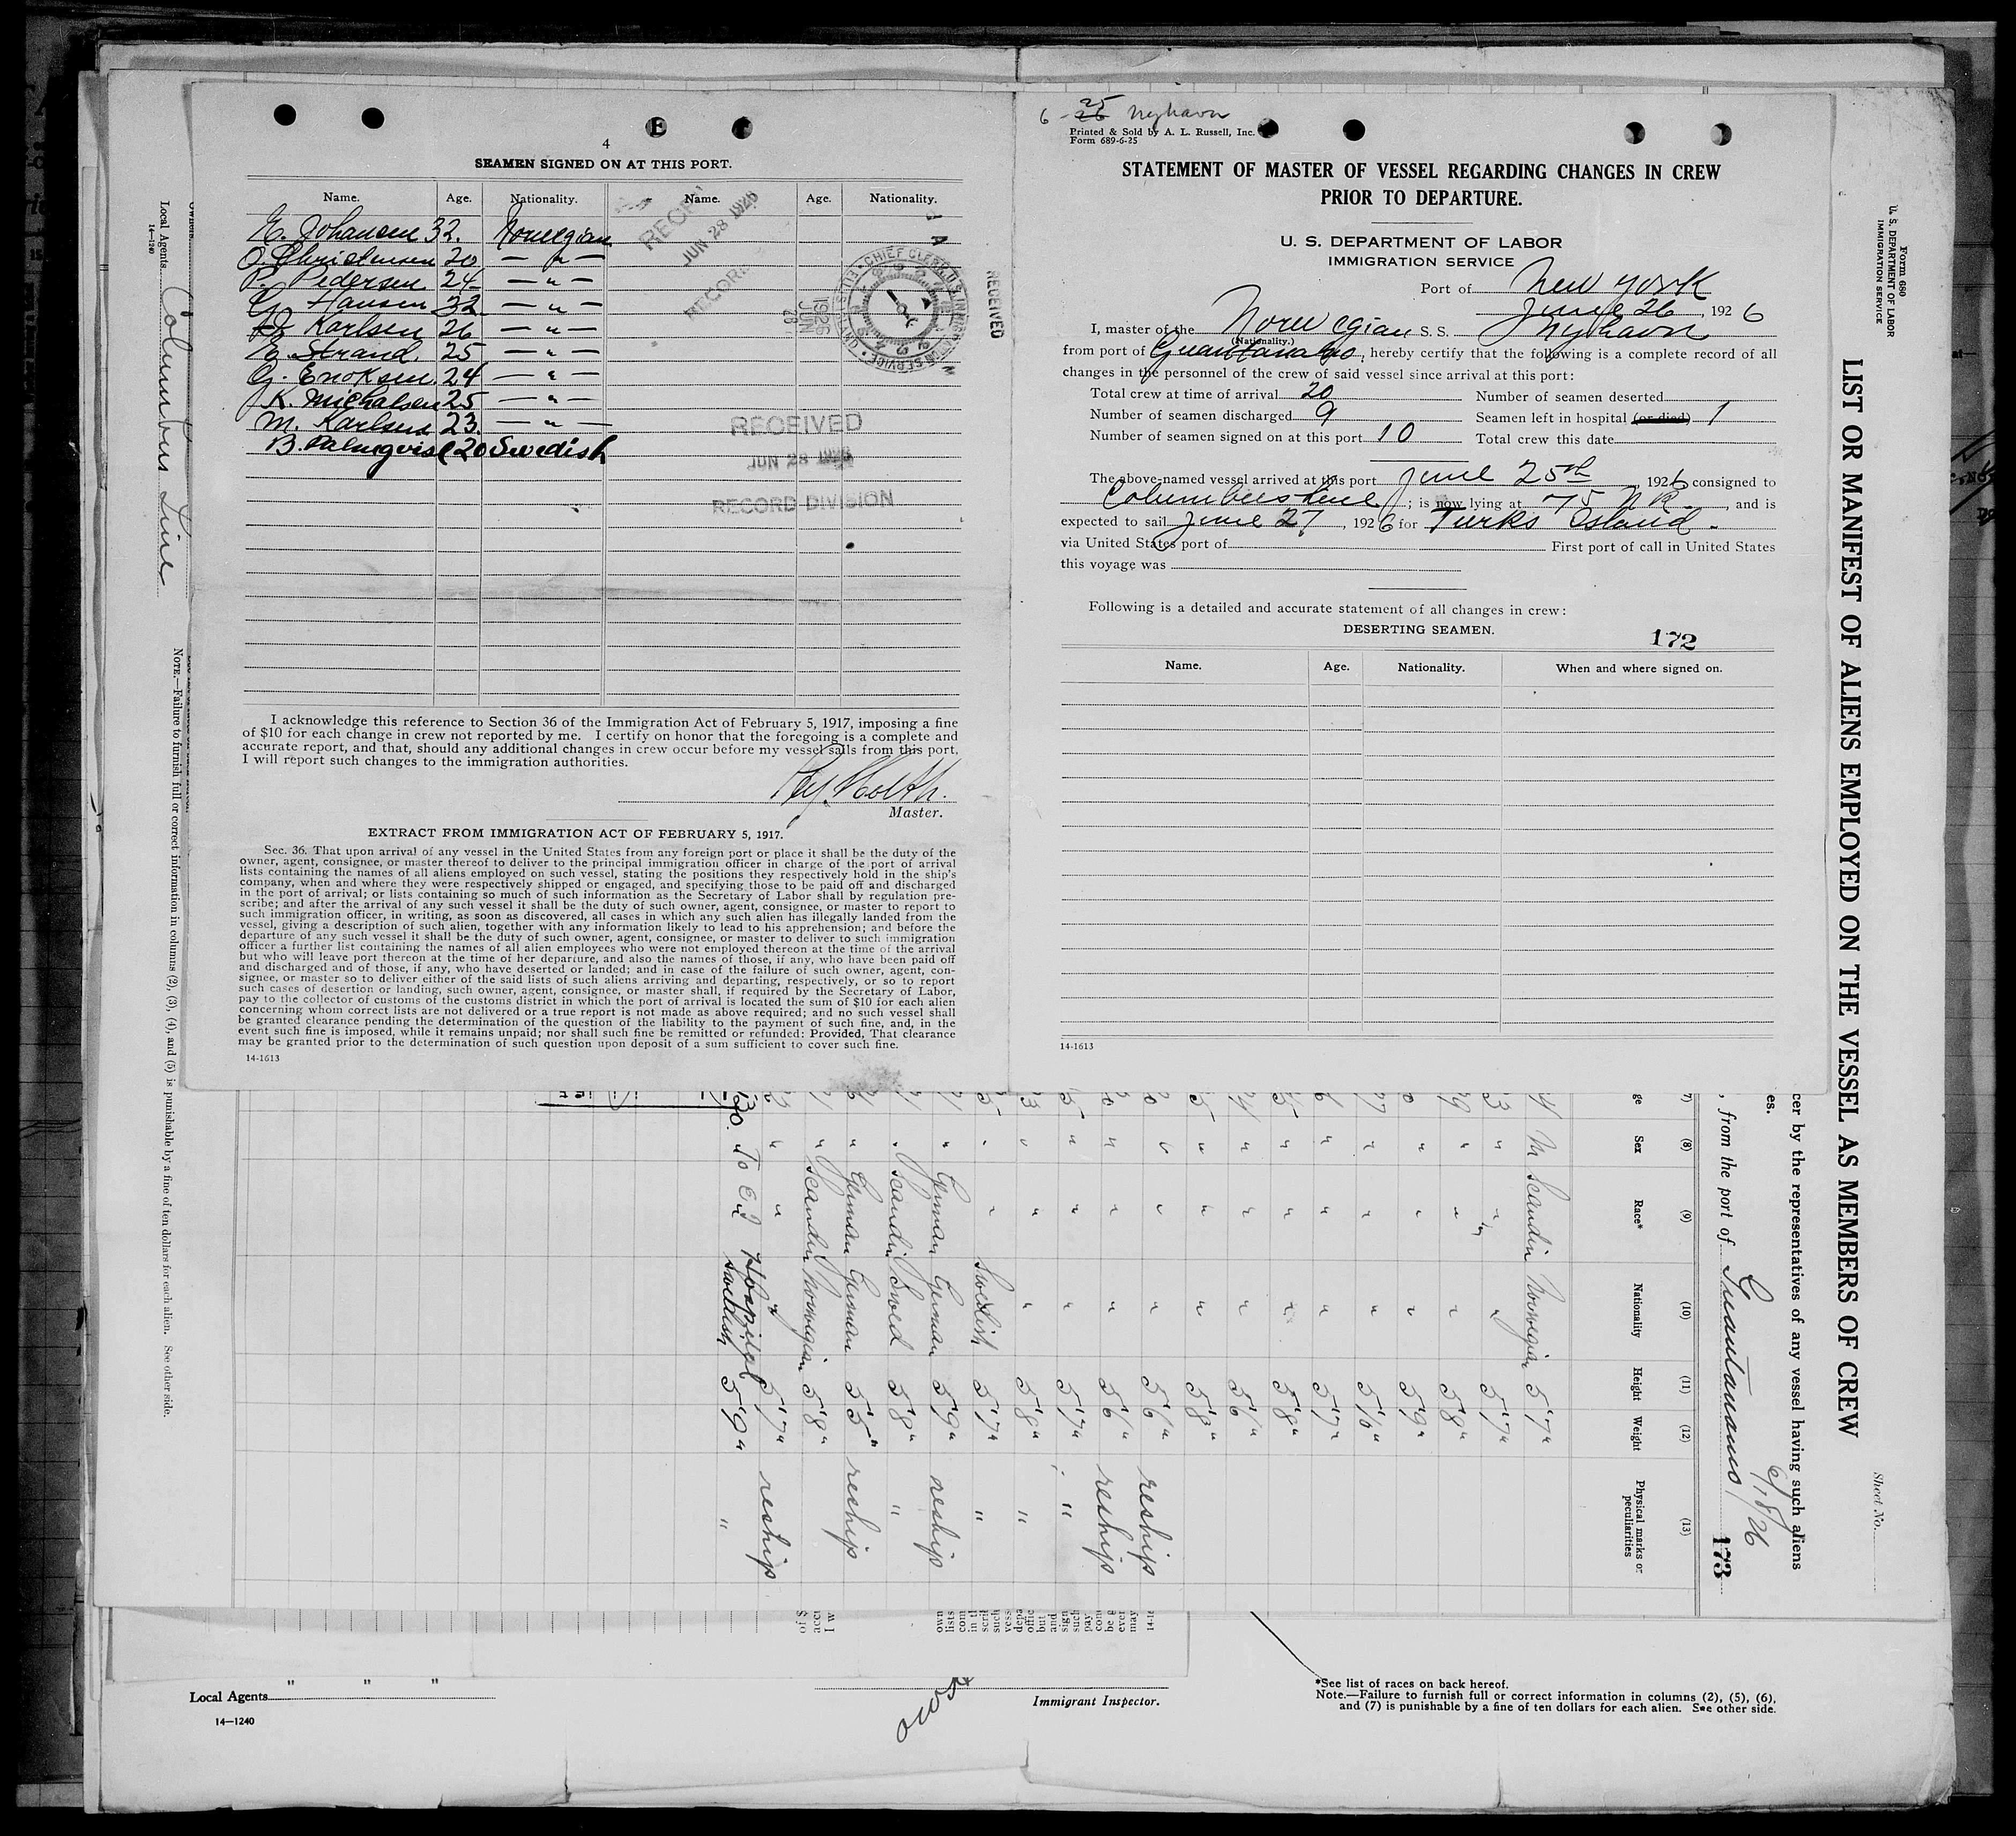 4
SEAMEN SIGNED ON AT THIS PORT.
Name. Age. Nationality. Name. Age. Nationality.
E. Johansen 32. Norwegian
O. Christensen 20 — " —
P. Pedersen 24 — " —
G. Hansen 32 — " —
Karlsen 26 — " —
E. Strand. 25 — " —
G. Enoksen. 24 — " —
K. Michalsen 25 — " —
M. Karlsen 23. — " —
B. Palmqvist 20 Swedish
JUN 28 1926
RECORD
CHIEF CLERK, U.S. IMMIGRATION SERVICE
1926 JUN 28
RECEIVED
RECEIVED
JUN 28 1926
RECORD DIVISION
I acknowledge this reference to Section 36 of the Immigration Act of February 5, 1917, imposing a fine
of $10 for each change in crew not reported by me. I certify on honor that the foregoing is a complete and
accurate report, and that, should any additional changes in crew occur before my vessel sails from this port,
I will report such changes to the immigration authorities.
Master.
EXTRACT FROM IMMIGRATION ACT OF FEBRUARY 5, 1917.
Sec. 36. That upon arrival of any vessel in the United States from any foreign port or place it shall be the duty of the
owner, agent, consignee, or master thereof to deliver to the principal immigration officer in charge of the port of arrival
lists containing the names of all aliens employed on such vessel, stating the positions they respectively hold in the ship's
company, when and where they were respectively shipped or engaged, and specifying those to be paid off and discharged
in the port of arrival; or lists containing so much of such information as the Secretary of Labor shall by regulation pre-
scribe; and after the arrival of any such vessel it shall be the duty of such owner, agent, consignee, or master to report to
such immigration officer, in writing, as soon as discovered, all cases in which any such alien has illegally landed from the
vessel, giving a description of such alien, together with any information likely to lead to his apprehension; and before the
departure of any such vessel it shall be the duty of such owner, agent, consignee, or master to deliver to such immigration
officer a further list containing the names of all alien employees who were not employed thereon at the time of the arrival
but who will leave port thereon at the time of her departure, and also the names of those, if any, who have been paid off
and discharged and of those, if any, who have deserted or landed; and in case of the failure of such owner, agent, con-
signee, or master so to deliver either of the said lists of such aliens arriving and departing, respectively, or so to report
such cases of desertion or landing, such owner, agent, consignee, or master shall, if required by the Secretary of Labor,
pay to the collector of customs of the customs district in which the port of arrival is located the sum of $10 for each alien
concerning whom correct lists are not delivered or a true report is not made as above required; and no such vessel shall
be granted clearance pending the determination of the question of the liability to the payment of such fine, and, in the
event such fine is imposed, while it remains unpaid; nor shall such fine be remitted or refunded: Provided, That clearance
may be granted prior to the determination of such question upon deposit of a sum sufficient to cover such fine.
14-1613
6 - 25 26 Nyhavn
Printed & Sold by A. L. Russell, Inc.
Form 689-6-25
STATEMENT OF MASTER OF VESSEL REGARDING CHANGES IN CREW
PRIOR TO DEPARTURE.
U. S. DEPARTMENT OF LABOR
IMMIGRATION SERVICE
Port of New York
June 26, 1926
I, master of the Norwegian S. S. Nyhavn
(Nationality.)
from port of Guantanamo, hereby certify that the following is a complete record of all
changes in the personnel of the crew of said vessel since arrival at this port:
Total crew at time of arrival 20 Number of seamen deserted
Number of seamen discharged 9 Seamen left in hospital (or died) 1
Number of seamen signed on at this port 10 Total crew this date
The above-named vessel arrived at this port June 25th, 1926 consigned to
Columbus Line; is now lying at 75 N R., and is
expected to sail June 27, 1926 for Turks Island.
via United States port of First port of call in United States
this voyage was
Following is a detailed and accurate statement of all changes in crew:
DESERTING SEAMEN.
172
Name. Age. Nationality. When and where signed on.
14-1613
Form 680
U. S. DEPARTMENT OF LABOR
IMMIGRATION SERVICE
Sheet No.
LIST OR MANIFEST OF ALIENS EMPLOYED ON THE VESSEL AS MEMBERS OF CREW
cer by the representatives of any vessel having such aliens
es.
6/18/26
, from the port of Guantanamo 173
(7) (8) (9) (10) (11) (12) (13)
ge Sex Race* Nationality Height Weight Physical marks or peculiarities
4 M Scandin Norwegian 5'7"
3 " " " 5'7"
9 " " " 5'8"
" " " 5'9"
" " " 5'6"
" " " 5'7"
" " " 5'8"
" " " 5'6"
" " " 5'8"
" " " 5'6" reships
" " " 5'6" reships
" " " 5'7" "
3 " " " 5'8" "
5 " " Swedish 5'7" "
" German German 5'9" reships
" Scandin Swed 5'8" "
" German German 5'5" reships
" Scandin Norwegian 5'8"
" " " 5'7" reships
To Hospital
Swedish 5'9" "
Local Agents Columbus Line
14-1240
NOTE.—Failure to furnish full or correct information in columns (2), (3), (4), and (5) is punishable by a fine of ten dollars for each alien. See other side.
Local Agents " " "
14—1240
Immigrant Inspector.
*See list of races on back hereof.
Note.—Failure to furnish full or correct information in columns (2), (5), (6),
and (7) is punishable by a fine of ten dollars for each alien. See other side.